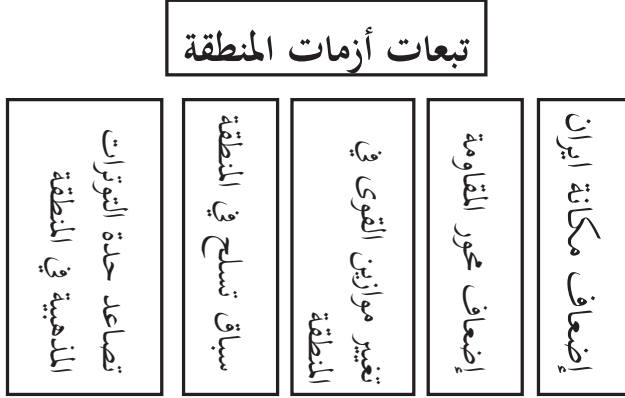 تبعات أزمات المنطقة
إضعاف مكانة ايران
إضعاف محور المقاومة
تغيير موازين القوى في
المنطقة
سباق تسلح في المنطقة
تصاعد حدة التوترات
المذهبية في المنطقة